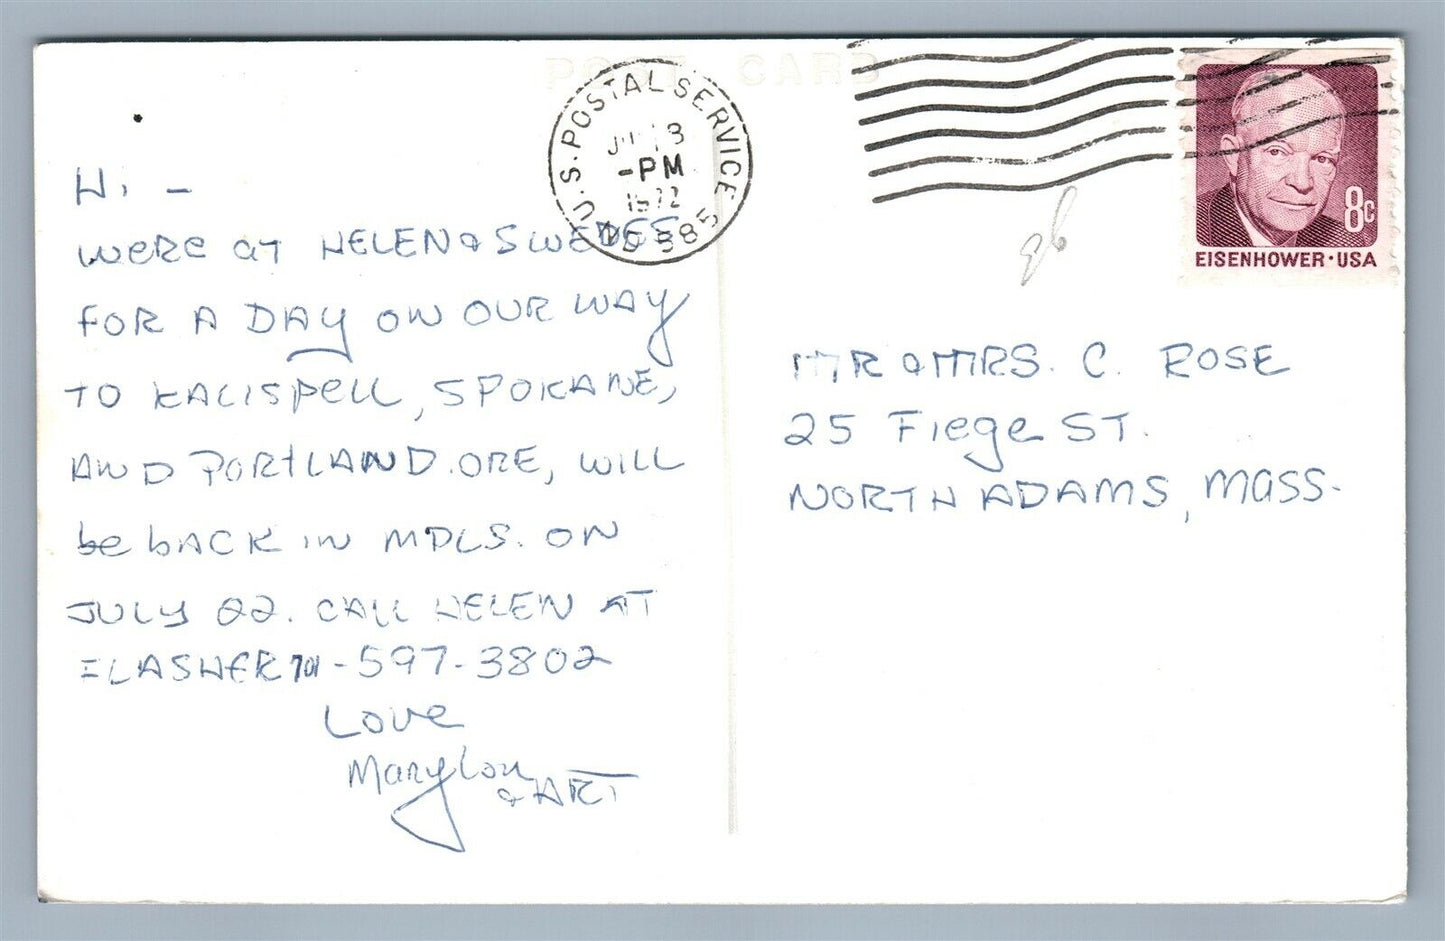 POST CARD
U.S. POSTAL SERVICE
-PM
1972
585
8c
EISENHOWER·USA
Hi -
WERE AT HELEN & SWEDES
FOR A DAY ON OUR WAY
TO KALISPELL, SPOKANE,
AND PORTLAND.ORE, WILL
be BACK IN MPLS. ON
JULY 22. CALL HELEN AT
FLASHER 701-597-3802
LOVE
Marylou
& ART
MR & MRS. C. ROSE
25 Fiege ST.
NORTH ADAMS, MASS.